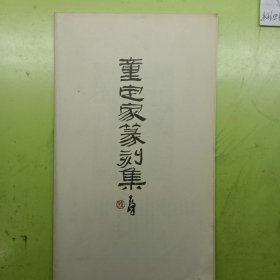 童定家篆刻集